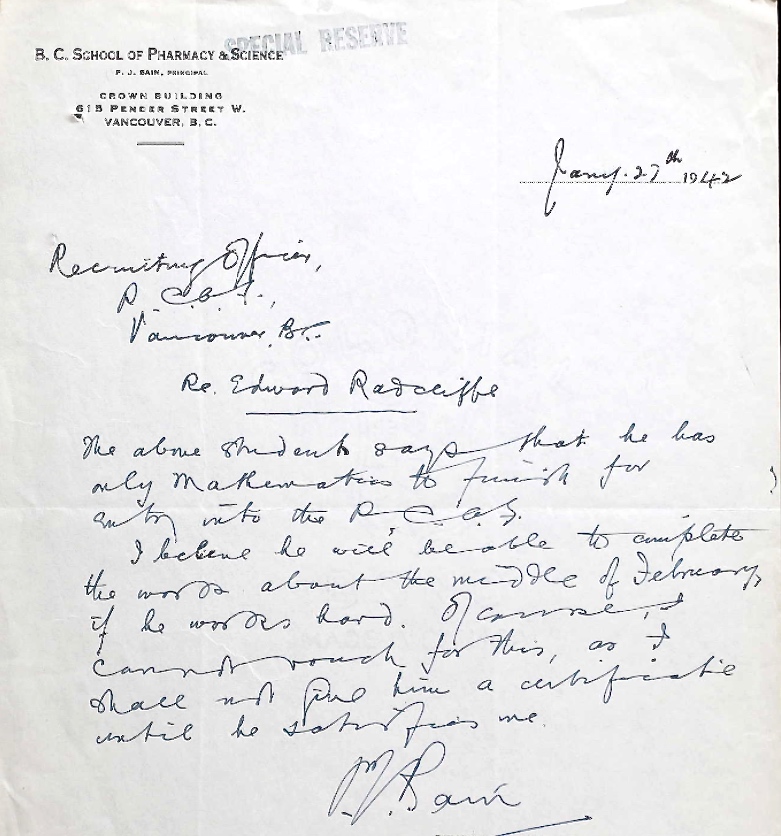 SPECIAL RESERVE
B. C. SCHOOL OF PHARMACY & SCIENCE
P. J. BAIN, PRINCIPAL
CROWN BUILDING
615 PENDER STREET W.
VANCOUVER, B. C.
Jany. 27th 1942
Recruiting Officer,
R.C.A.F.,
Vancouver, B.C.
Re. Edward Radcliffe
The above student says that he has
only Mathematics to finish for
entry into the R.C.A.F.
I believe he will be able to complete
the work about the middle of February,
if he works hard. Of course, I
cannot vouch for this, as I
shall not give him a certificate
until he satisfies me.
P.J. Bain